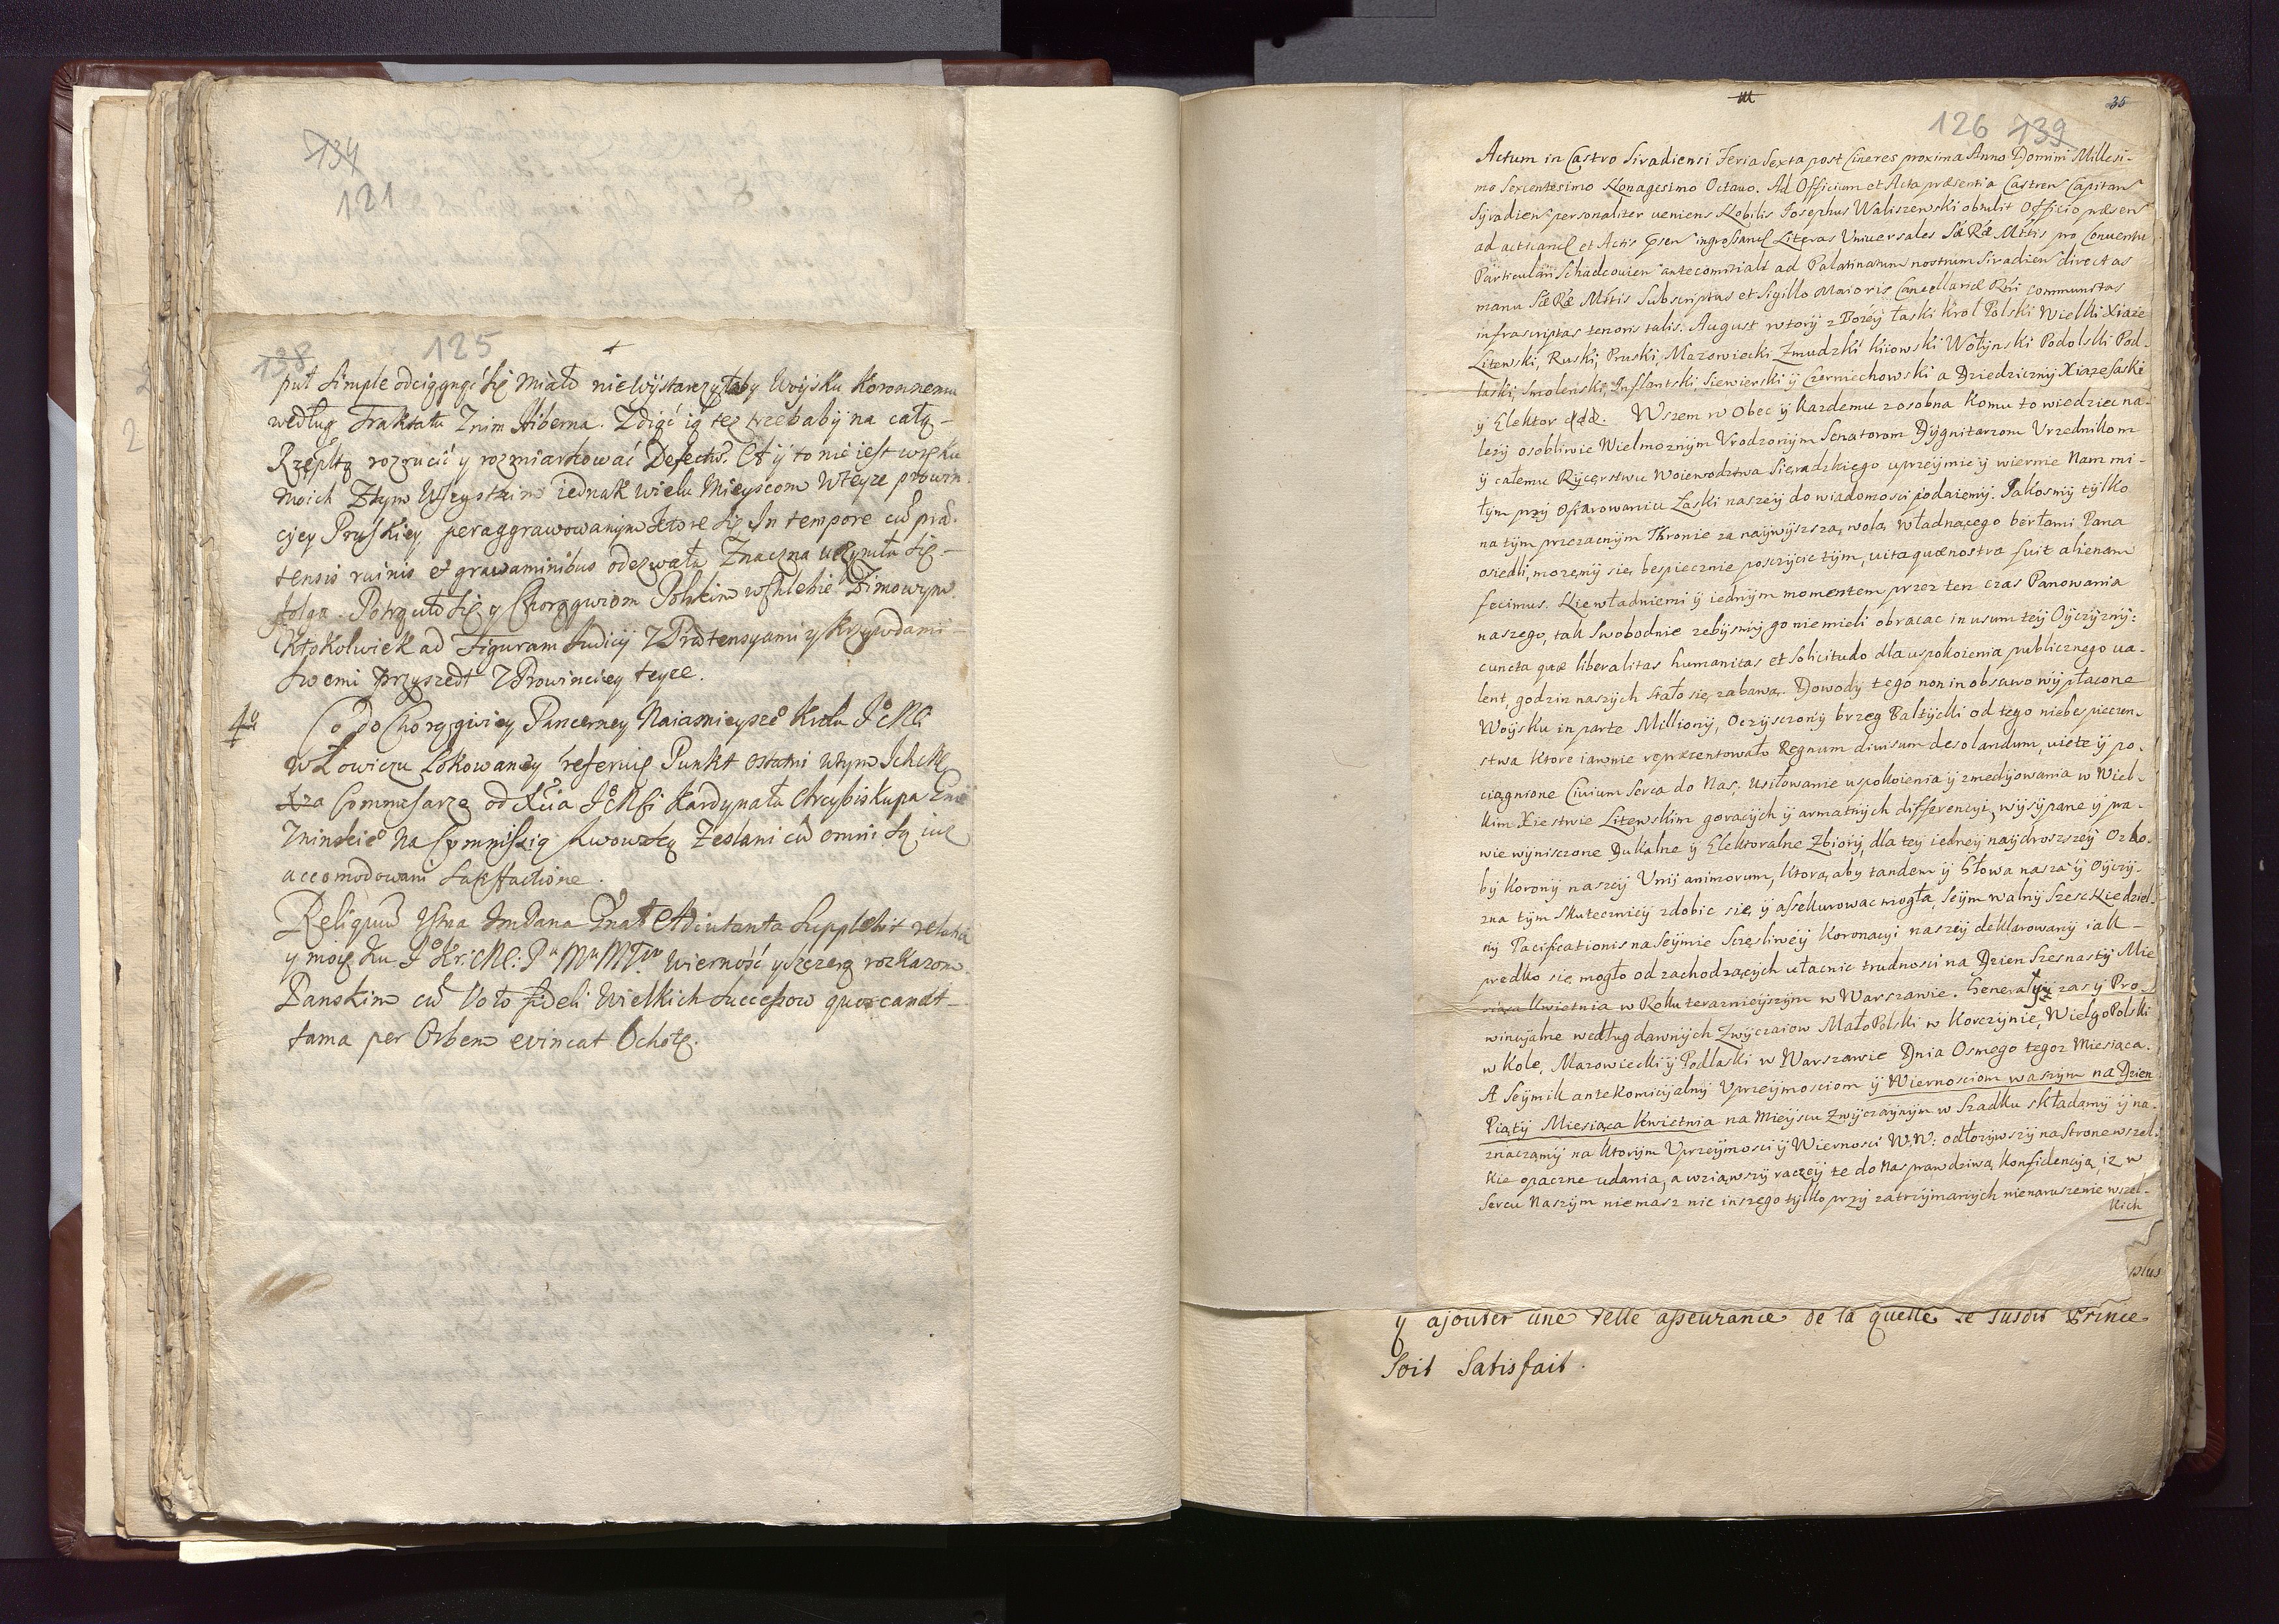 134
121
138
125
put simple odciągnąć się miało niewystarczyłaby Woysku Koronnemu
według Traktatu Znim Hiberna. Zdiąć ią też trzebaby na całą
Rzepltą rozrucić y rozmiarkować Defectū. A y to nie iest w ręku
moich Ztym Wszystkim iednak wielu Mieyscom Wteyże prowin
cyey Pruskiey peraggrawowanym które się In tempore cū præ
tensis ruinis et grawaminibus odezwały Znaczna uczyniła się
folga. Potrąciło się y Chorągwiom Polskim w chlebie Zimowym
Ktokolwiek ad Figuram Iudicij z Prætensyami y krzywdami
swemi przyszedł z Prowinciey teyże.
4to
Co do Chorągiwiey Pancerney Naiasnieyszeo Krola Jo Mći
w Łowiczu Lokowaney referuię Punkt ostatni
Commisarze od Xcia Jo Mśći Kardynała Arcybiskupa Gnie
znińskieo na Commissią Lwowską Zesłani cū omni są iuż
accomodowani satisfactione.
Reliquū Ustna ImPana Adiutanta supplebit relatia
y moię ku wierność y szczerą rozkazom
Pańskim cū Voto fideli Wielkich successow quæ canat
fama per Orbem evincat Ochotę.
35
126 139
Actum in Castro Siradiensi Feria Sexta post Cineres proxima Anno Domini Millesi-
mo Sexcentesimo Nonagesimo Octavo. Ad Officium et Acta præsentia Castren Capitan
Syradien personaliter veniens Nobilis Josephus Waliszewski obtulit Officio præsen
ad acticand et Actis ingrossand Literas Universales Sæ Ræ Mttis pro Conventu
Particulari Schadcovien antecomitiali ad Palatinatum nostrum Siradien directas
manu Sæ Ræ Mttis Subscriptas et Sigillo Maioris Cancellariæ Rni communitas
infrascriptas tenoris talis. August wtory z Bożey łaski Krol Polski Wielki Xiąże
Litewski, Ruski, Pruski, Mazowiecki, Zmudzki Kiiowski Wołynski Podolski Pod-
laski, Smolenski, Inflantski, Siewierski y Czerniechowski a Dziedziczny Xiąże Saski
y Elektor &&&. Wszem w Obec y kazdemu zosobna Komu to wiedziec na-
lezy osobliwie Wielmoznym Urodzonym Senatorom Dygnitarzom Urzednikom
y całemu Rycerstwu Woiewodztwa Sieradzkiego uprzeymie y wiernie Nam mi-
łym przy Ofiarowaniu Łaski naszey do wiadomosci podaiemy. Jakosmy tylko
na tym przezacnym Thronie za naywyzszą wolą władnącego berłami Pana
osiedli, mozemy się bespiecznie poszczycic tym, vita quæ nostra fuit alienam
fecimus. Nie władniemi y iednym momentem przez ten czas Panowania
naszego, tak Swobodnie zebysmy go niemieli obracac in usum tey Oyczyzny:
cuncta quæ liberalitas humanitas et Solicitudo dla uspokoienia publicznego va-
lent, godzin naszych stało się zabawą. Dowody tego non in obscuro wypłacone
Woysku in parte Milliony, Oczysczony brzeg Baltycki od tego niebespieczen-
stwa ktore iawnie repræsentowało Regnum divisum desolandum, uięte y po-
ciągnione Civium Serca do Nas, usiłowanie uspokoienia y zmedyowania w Wiel-
kim Xiestwie Litewskim gorących y armatnych differencyi, wysypane y pra-
wie wyniszczone Dukalne y Elektoralne Zbiory, dla tey iedney naydrozszey Ozdo-
by Korony naszey Unij animorum, Ktorą aby tandem y Głowa nasza y Oyczy-
zna tym Skuteczniey zdobic się y assekurowac mogła, Seym walny Szesc Niedziel-
ny Pacificationis na Seymie Szczęsliwey Koronacyi naszey deklarowany iak
prędko się mogło od zachodzących ułacnic trudnosci na Dzien Szesnasty Mie
siąca Kwietnia w Roku teraznieyszym w Warszawie. Generały zas y Pro-
wincyalne według dawnych Zwyczaiow MałoPolski w Korczynie, WielgoPolski
w Kole, Mazowiecki y Podlaski w Warszawie Dnia Osmego tegoz Miesiąca.
A Seymik antekomicyalny Uprzeymosciom y Wiernosciom waszym na Dzien
Piąty Miesiąca Kwietnia na Mieyscu Zwyczaynym w Szadku składamy y na-
znaczamy na ktorym Uprzeymosci y Wiernosci W.W: odłozywszy na Strone wszel-
kie opaczne udania, a wziąwszy raczey te do Nas prawdziwą konfidencyą, iz w
Sercu Naszym niemasz nic inszego tylko przy zatrzymanych nienaruszenie wszel-
kich
plus
y ajouter une telle asseurance de la quelle le susdit Prince
soit satisfait.